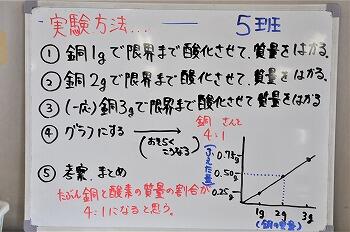 実験方法… 5班
① 銅1gで限界まで酸化させて、質量をはかる。
② 銅2gで限界まで酸化させて、質量をはかる。
③ (一応)銅3gで限界まで酸化させて質量をはかる
④ グラフにする
(おそらくこうなる)
銅 さんそ
4:1
(ふえた量)
0.75g
0.50g
0.25g
1g 2g 3g
(銅の質量)
⑤ 考察、まとめ
たぶん銅と酸素の質量の割合が
4:1になると思う。